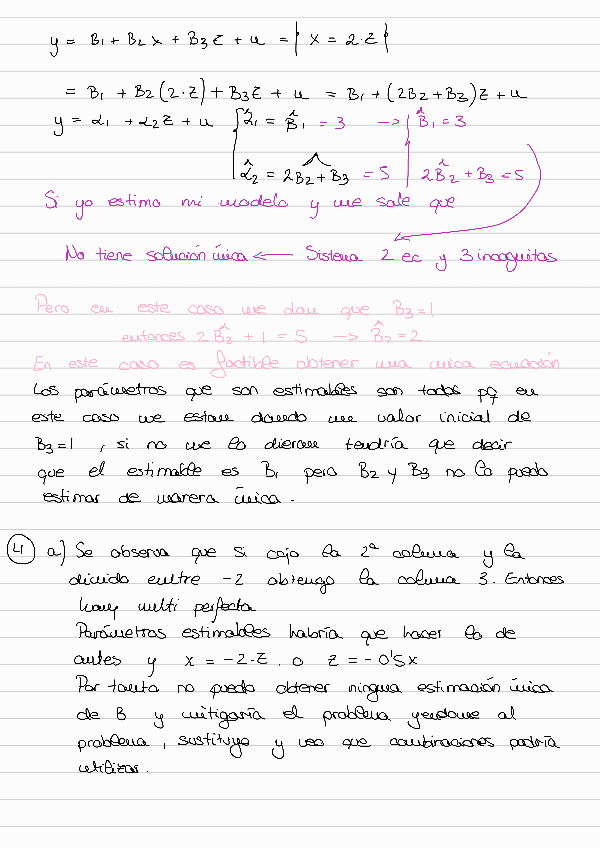 y = B1 + B2 x + B3 z + u = | x = 2·z |
= B1 + B2 (2·z) + B3 z + u = B1 + (2B2 + B3) z + u
y = α1 + α2 z + u { α̂1 = B̂1 = 3 → | B̂1 = 3
α̂2 = 2B2 + B3 = 5 | 2B̂2 + B3 = 5
Si yo estimo mi modelo y me sale que
No tiene solución única ← Sistema 2 ec y 3 incognitas
Pero en este caso me dan que B3 = 1
entonces 2B̂2 + 1 = 5 → B̂2 = 2.
En este caso es factible obtener una unica ecuación
Los parámetros que son estimables son todos pq en
este caso me estan dando un valor inicial de
B3 = 1 , si no me lo dieran tendría que decir
que el estimable es B1 pero B2 y B3 no lo puedo
estimar de manera única.
4 a) Se observa que si cojo la 2ª columna y la
divido entre -2 obtengo la columna 3. Entonces
hay multi perfecta
Parámetros estimables habría que hacer lo de
antes y x = -2·z. o z = -0'5x
Por tanto no puedo obtener ningua estimación única
de B y mitigaría el problema yendome al
problema, sustituyo y veo que combinaciones podría
utilizar.